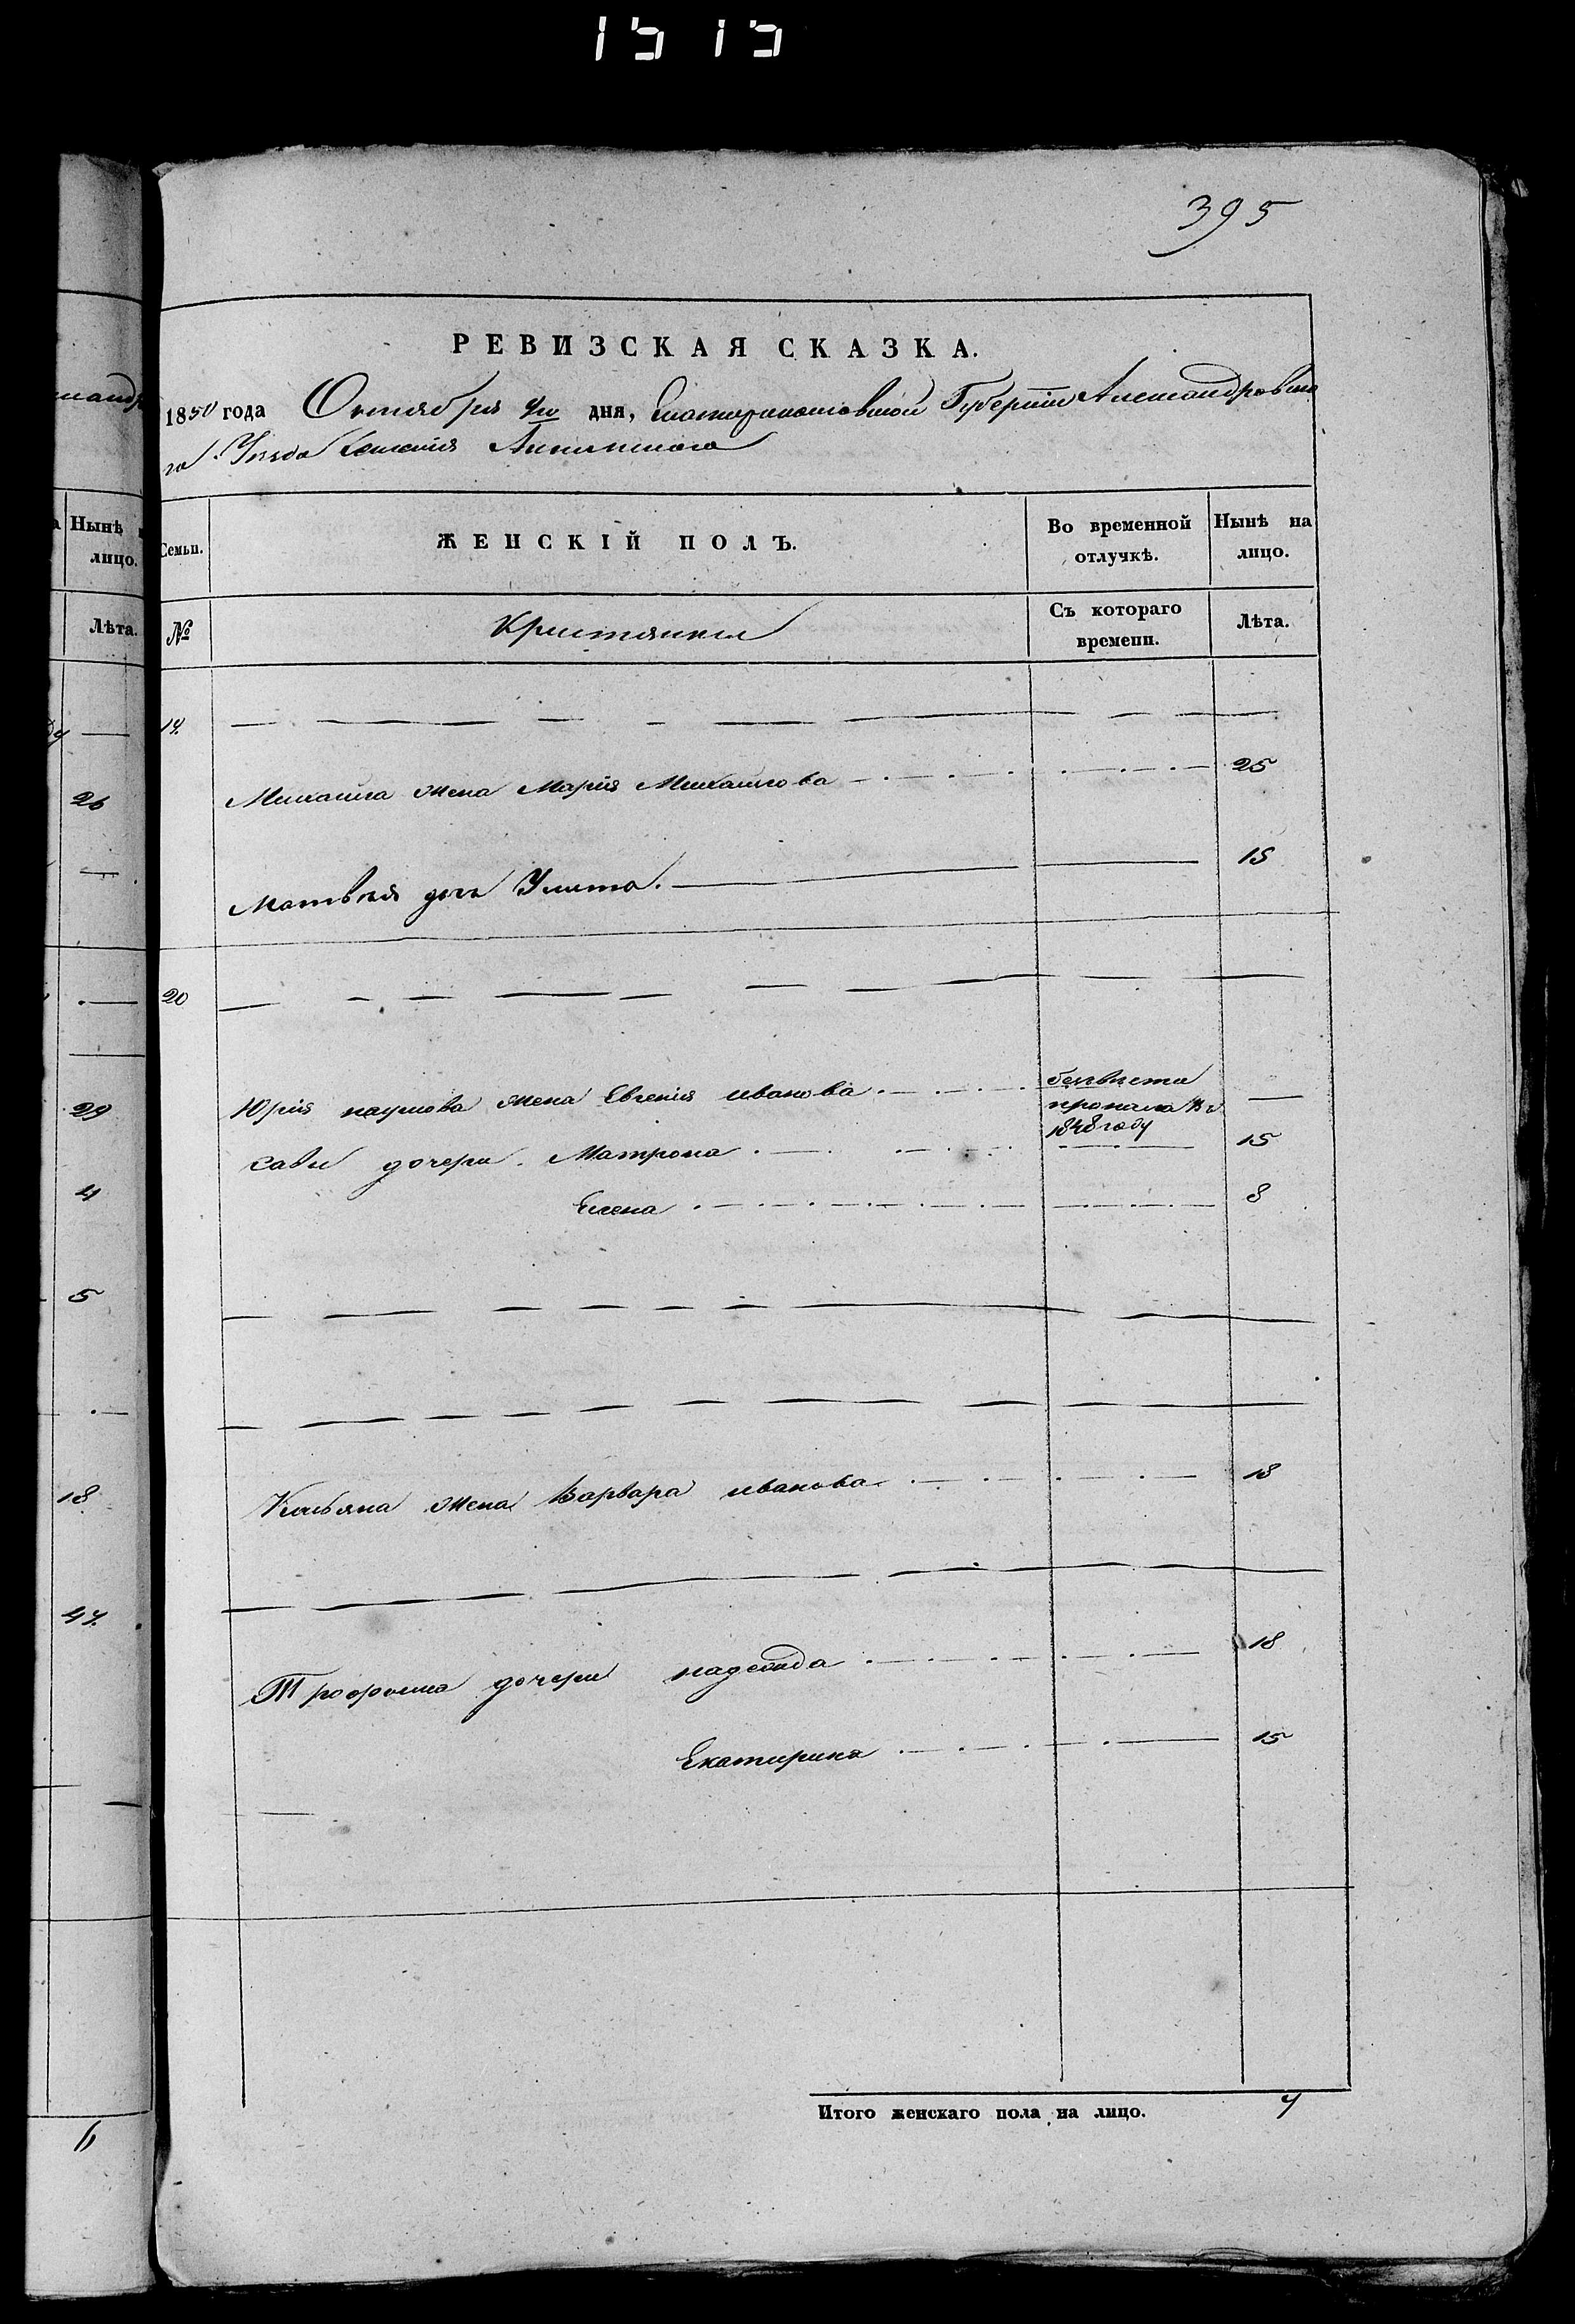 1515
395
РЕВИЗСКАЯ СКАЗКА.
1850 года Октября дня, Екатеринославской Губерніи Александровска
го Уѣзда Селенія
Семьи. ЖЕНСКІЙ ПОЛЪ. Во временной отлучкѣ. Нынѣ на лицо.
№ Кристянки Съ котораго времени. Лѣта.
14.
Михаила жена Марія Михайлова 25
Матвѣя дочь Улита. 15
20
Юрія наумова жена Евгенія иванова безвѣсти пропала въ 1848 году —
Савы дочери. Матрона 15
Елена 8
Касьяна жена Варвара иванова 18
Трофима дочери надежда 18
Екатирина 15
Итого женскаго пола на лицо. 7
Нынѣ
лицо.
Лѣта.
26
29
4
5
18
47.
6